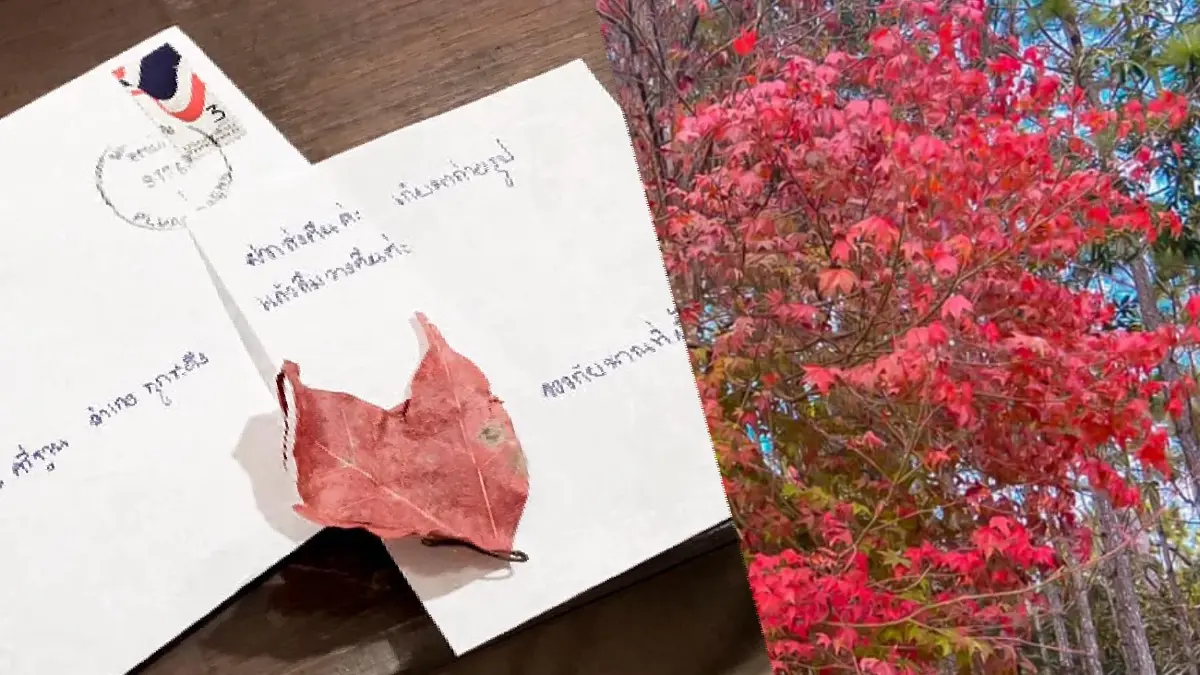 3
ฝากส่งคืนค่ะ เก็บมาถ่ายรูป
แล้วลืมวางคืนค่ะ
ขออภัยมาณที่
ศรีฐาน อำเภอ ภูกระดึง